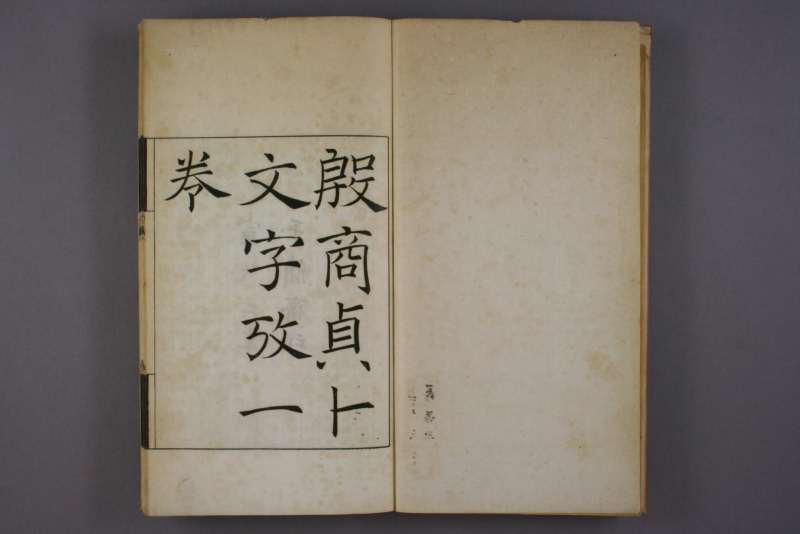 殷商貞卜
文字攷一
卷